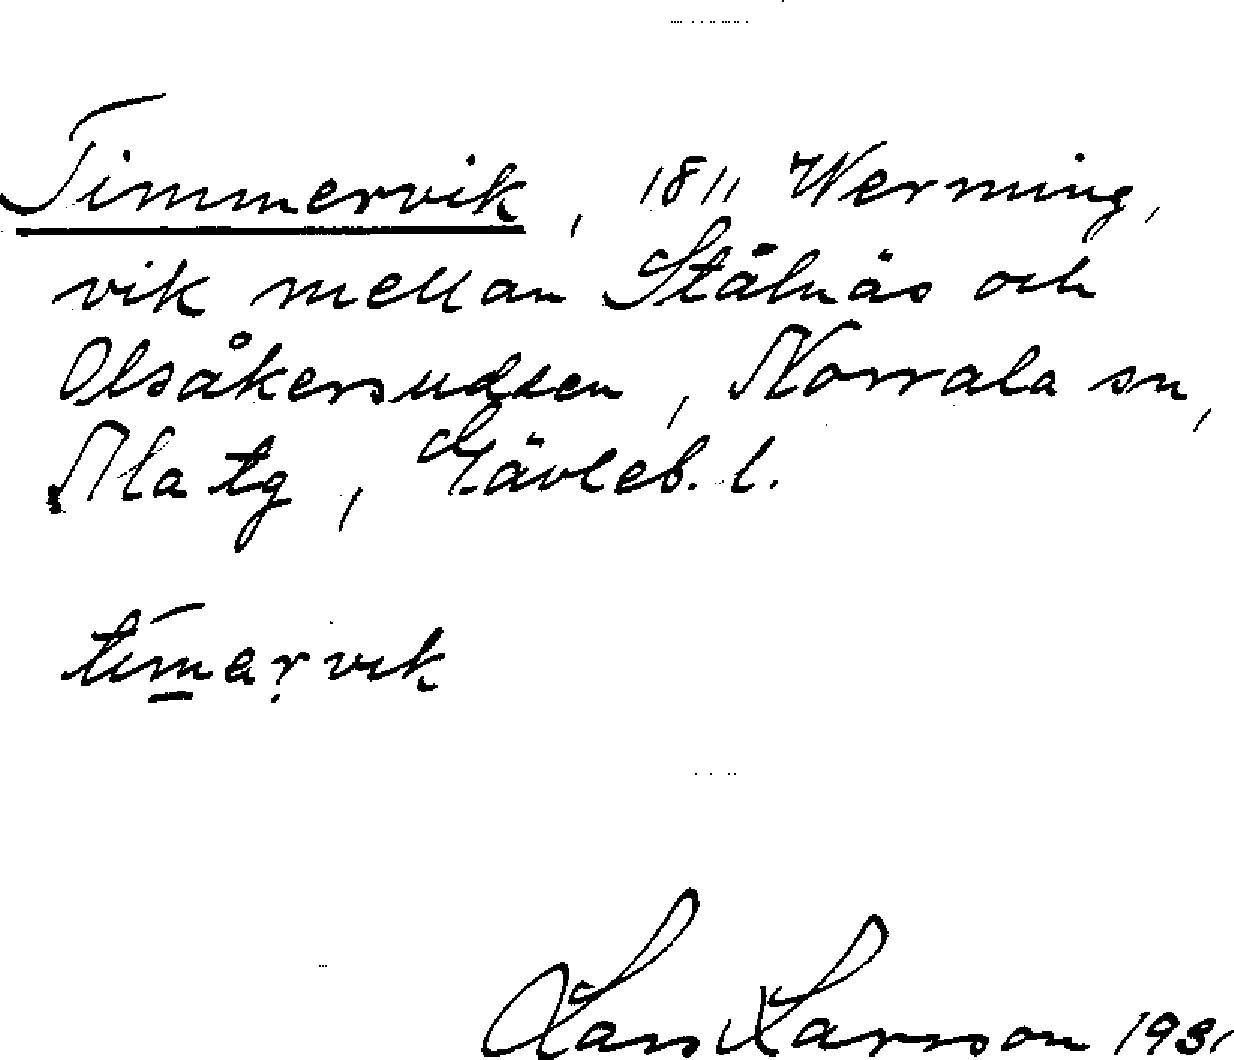 Timmervik, 1811 Werming,
vik mellan Stålnäs och
Olsåkersudden, Norrala sn,
Nla tg, Gävleb. l.
timarvik
Lars Larsson 1931